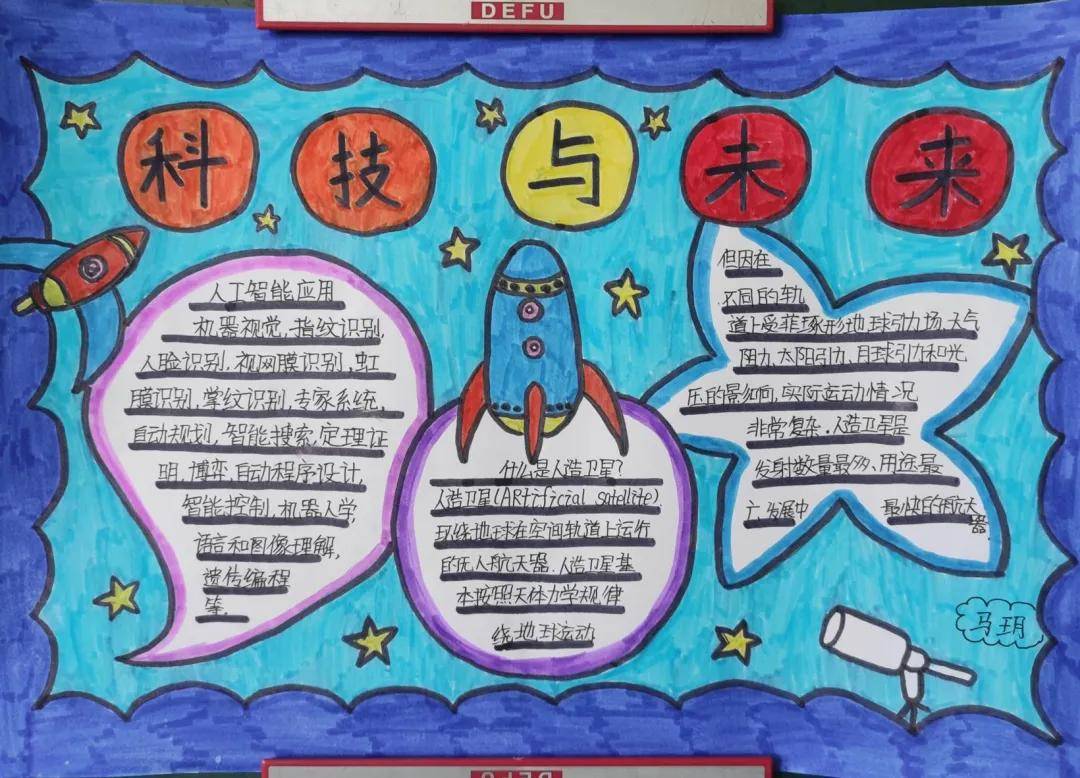 DEFU
科技与未来
人工智能应用
机器视觉,指纹识别,
人脸识别,视网膜识别,虹
膜识别,掌纹识别,专家系统,
自动规划,智能搜索,定理证
明,博弈,自动程序设计,
智能控制,机器人学,
语言和图像理解,
遗传编程
等.
什么是人造卫星?
人造卫星(ARtificial satellite)
环绕地球在空间轨道上运行
的无人航天器.人造卫星基
本按照天体力学规律
绕地球运动
但因在
不同的轨
道上受非球形地球引力场、大气
阻力、太阳引力、月球引力和光
压的影响,实际运动情况
非常复杂.人造卫星是
发射数量最多、用途最
广、发展中 最快的航天
器
马玥
DEFU